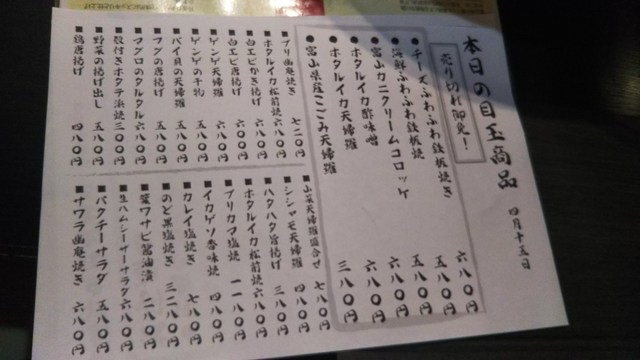 本日の目玉商品
四月十五日
売り切れ御免！
●チーズふわふわ鉄板焼き 六八〇円
●海鮮ふわふわ鉄板焼 五八〇円
●富山カニクリームコロッケ 五八〇円
●ホタルイカ酢味噌 六八〇円
●ホタルイカ天婦羅 六八〇円
●富山県産こごみ天婦羅 三八〇円
■ブリ幽庵焼き 七二〇円
■ホタルイカ松前焼 六八〇円
■白エビかき揚げ 六八〇円
■白エビ唐揚げ 六〇〇円
■ゲンゲ天婦羅 五八〇円
■ゲンゲの干物 五八〇円
■バイ貝の天婦羅 五八〇円
■フグの唐揚げ 五八〇円
■マグロのタルタル 六八〇円
■殻付きホタテ浜焼 三〇〇円
■野菜の揚げ出し 五八〇円
■鶏唐揚げ 四八〇円
■山菜天婦羅盛合せ 七八〇円
■シシャモ天婦羅 四八〇円
■ハタハタ旨揚げ 三八〇円
■ホタルイカ松前焼 六八〇円
■ブリカマ塩焼 一一八〇円
■イカゲソ香味焼 四八〇円
■カレイ塩焼き 七八〇円
■のど黒塩焼き 三二八〇円
■葉ワサビ醤油漬 二八〇円
■生ハムシーザーサラダ 六八〇円
■パクチーサラダ 五八〇円
■サワラ幽庵焼き 六八〇円